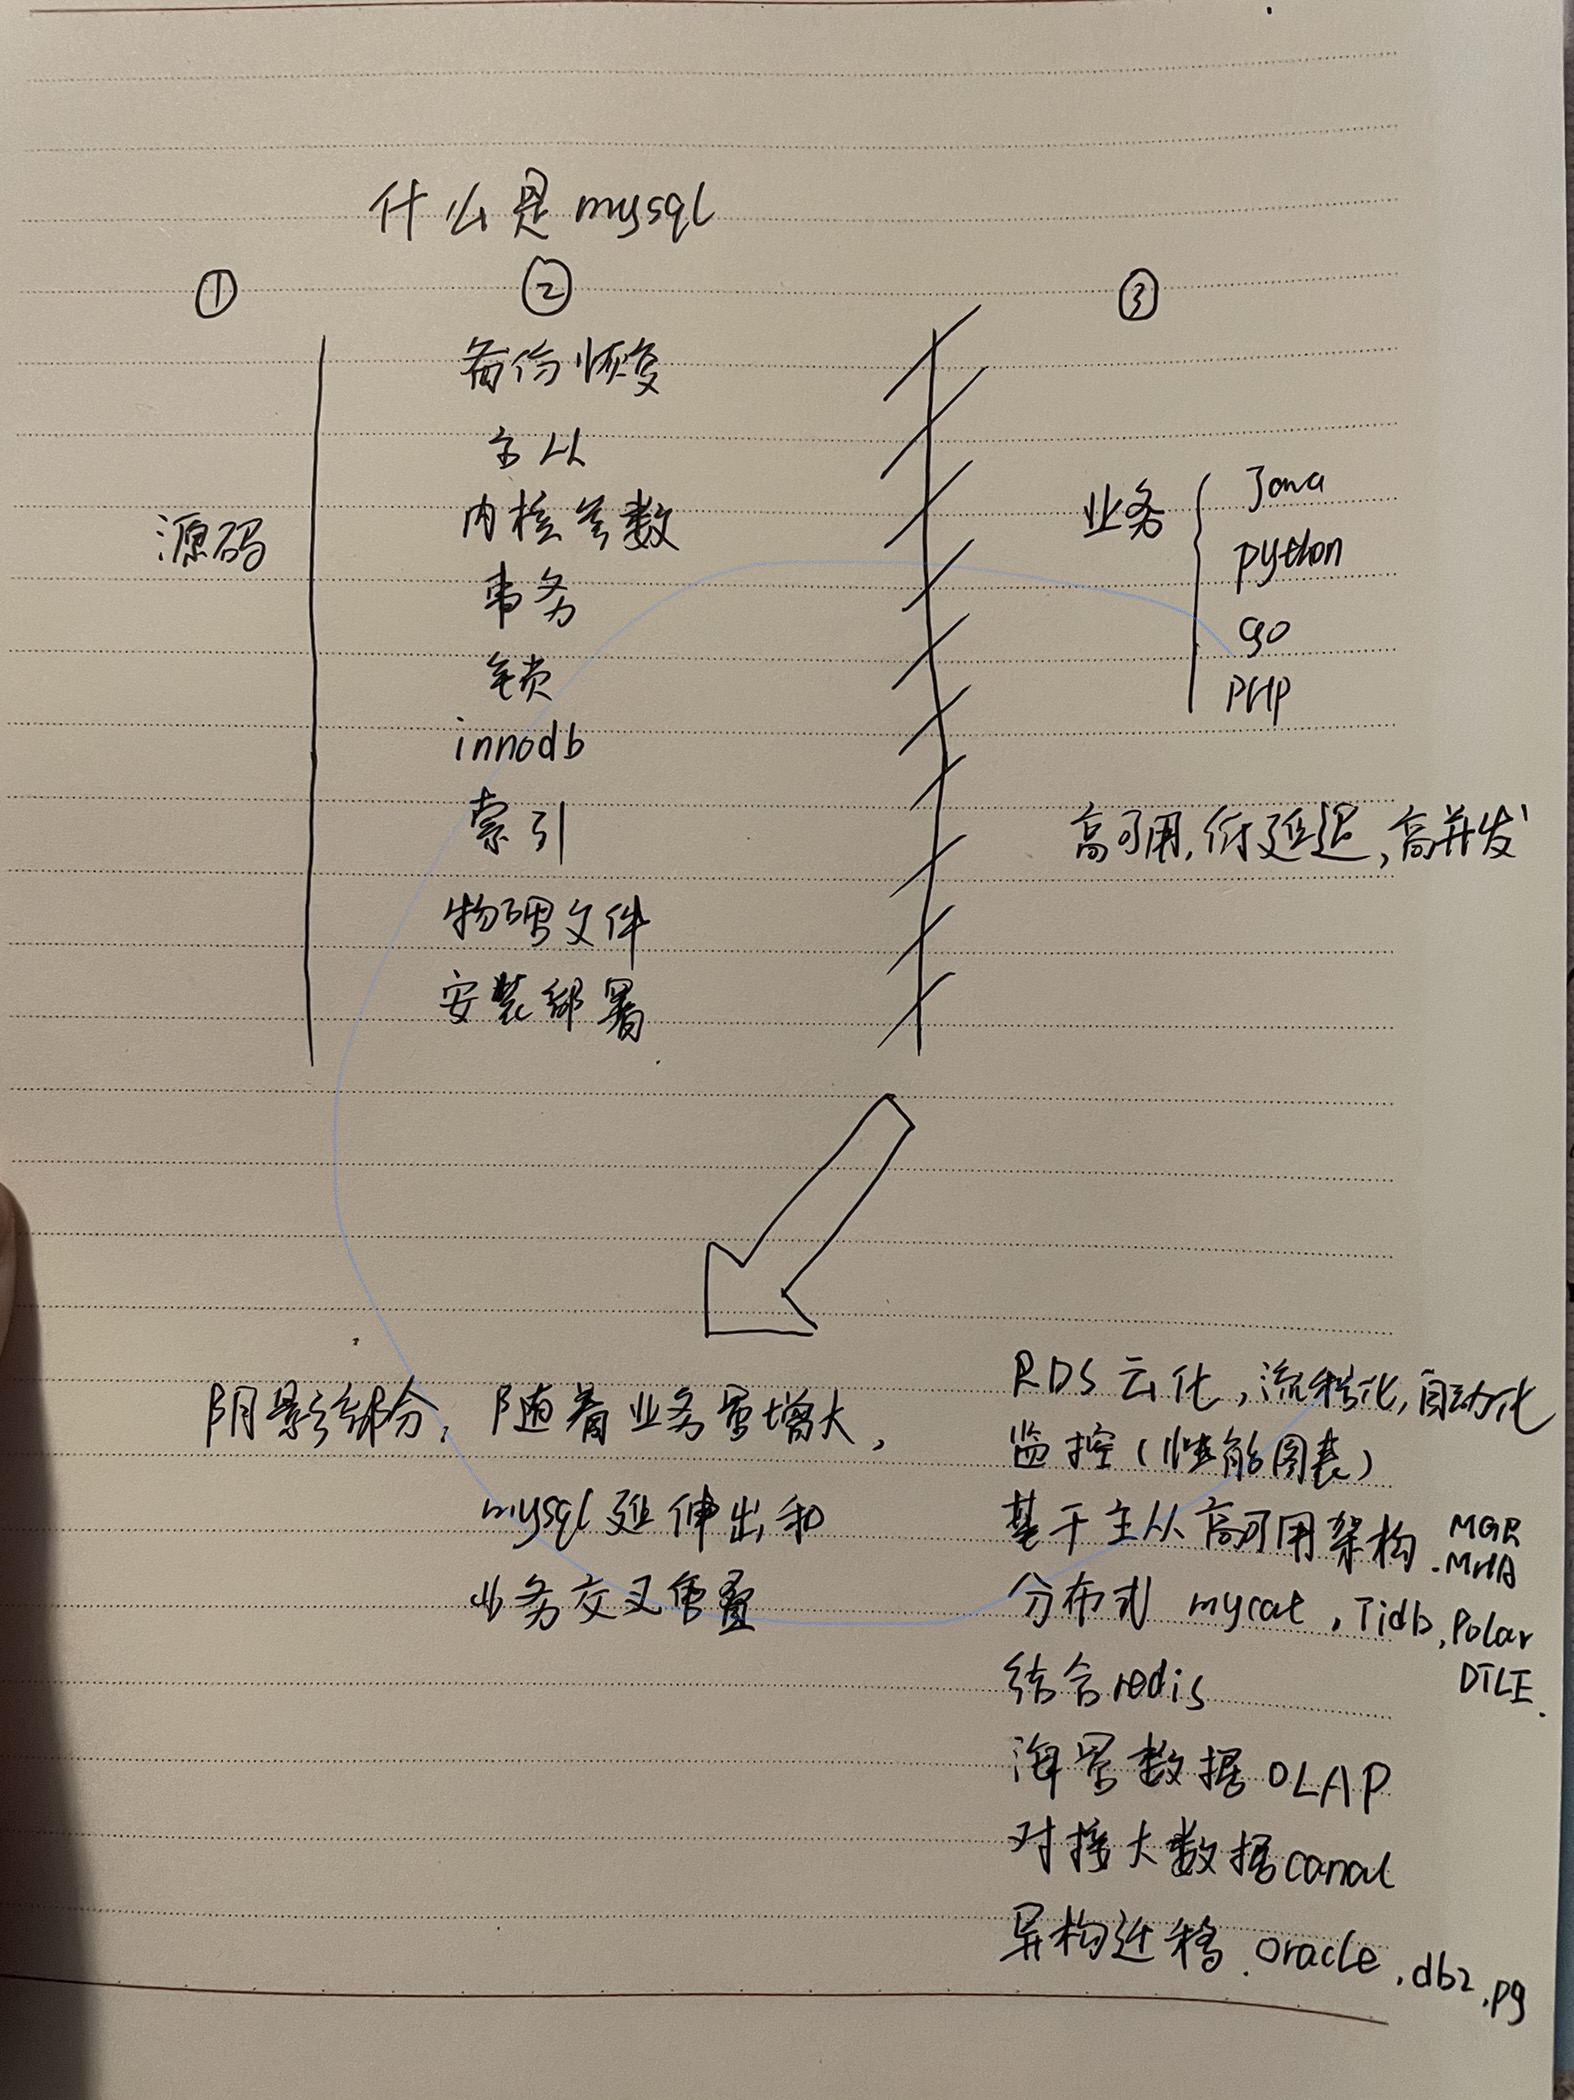 什么是mysql
① ② ③
备份恢复
主从
内核参数
事务
锁
innodb
索引
物理文件
安装部署
源码
业务
Java
python
go
PHP
高可用,低延迟,高并发
阴影部分,随着业务量增大,
mysql延伸出和
业务交叉重叠
RDS云化,流程化,自动化
监控(性能图表)
基于主从高可用架构.MGR
.MHA
分布式 mycat,Tidb,Polar
DTLE.
结合redis
海量数据OLAP
对接大数据canal
异构迁移.oracle,db2,pg